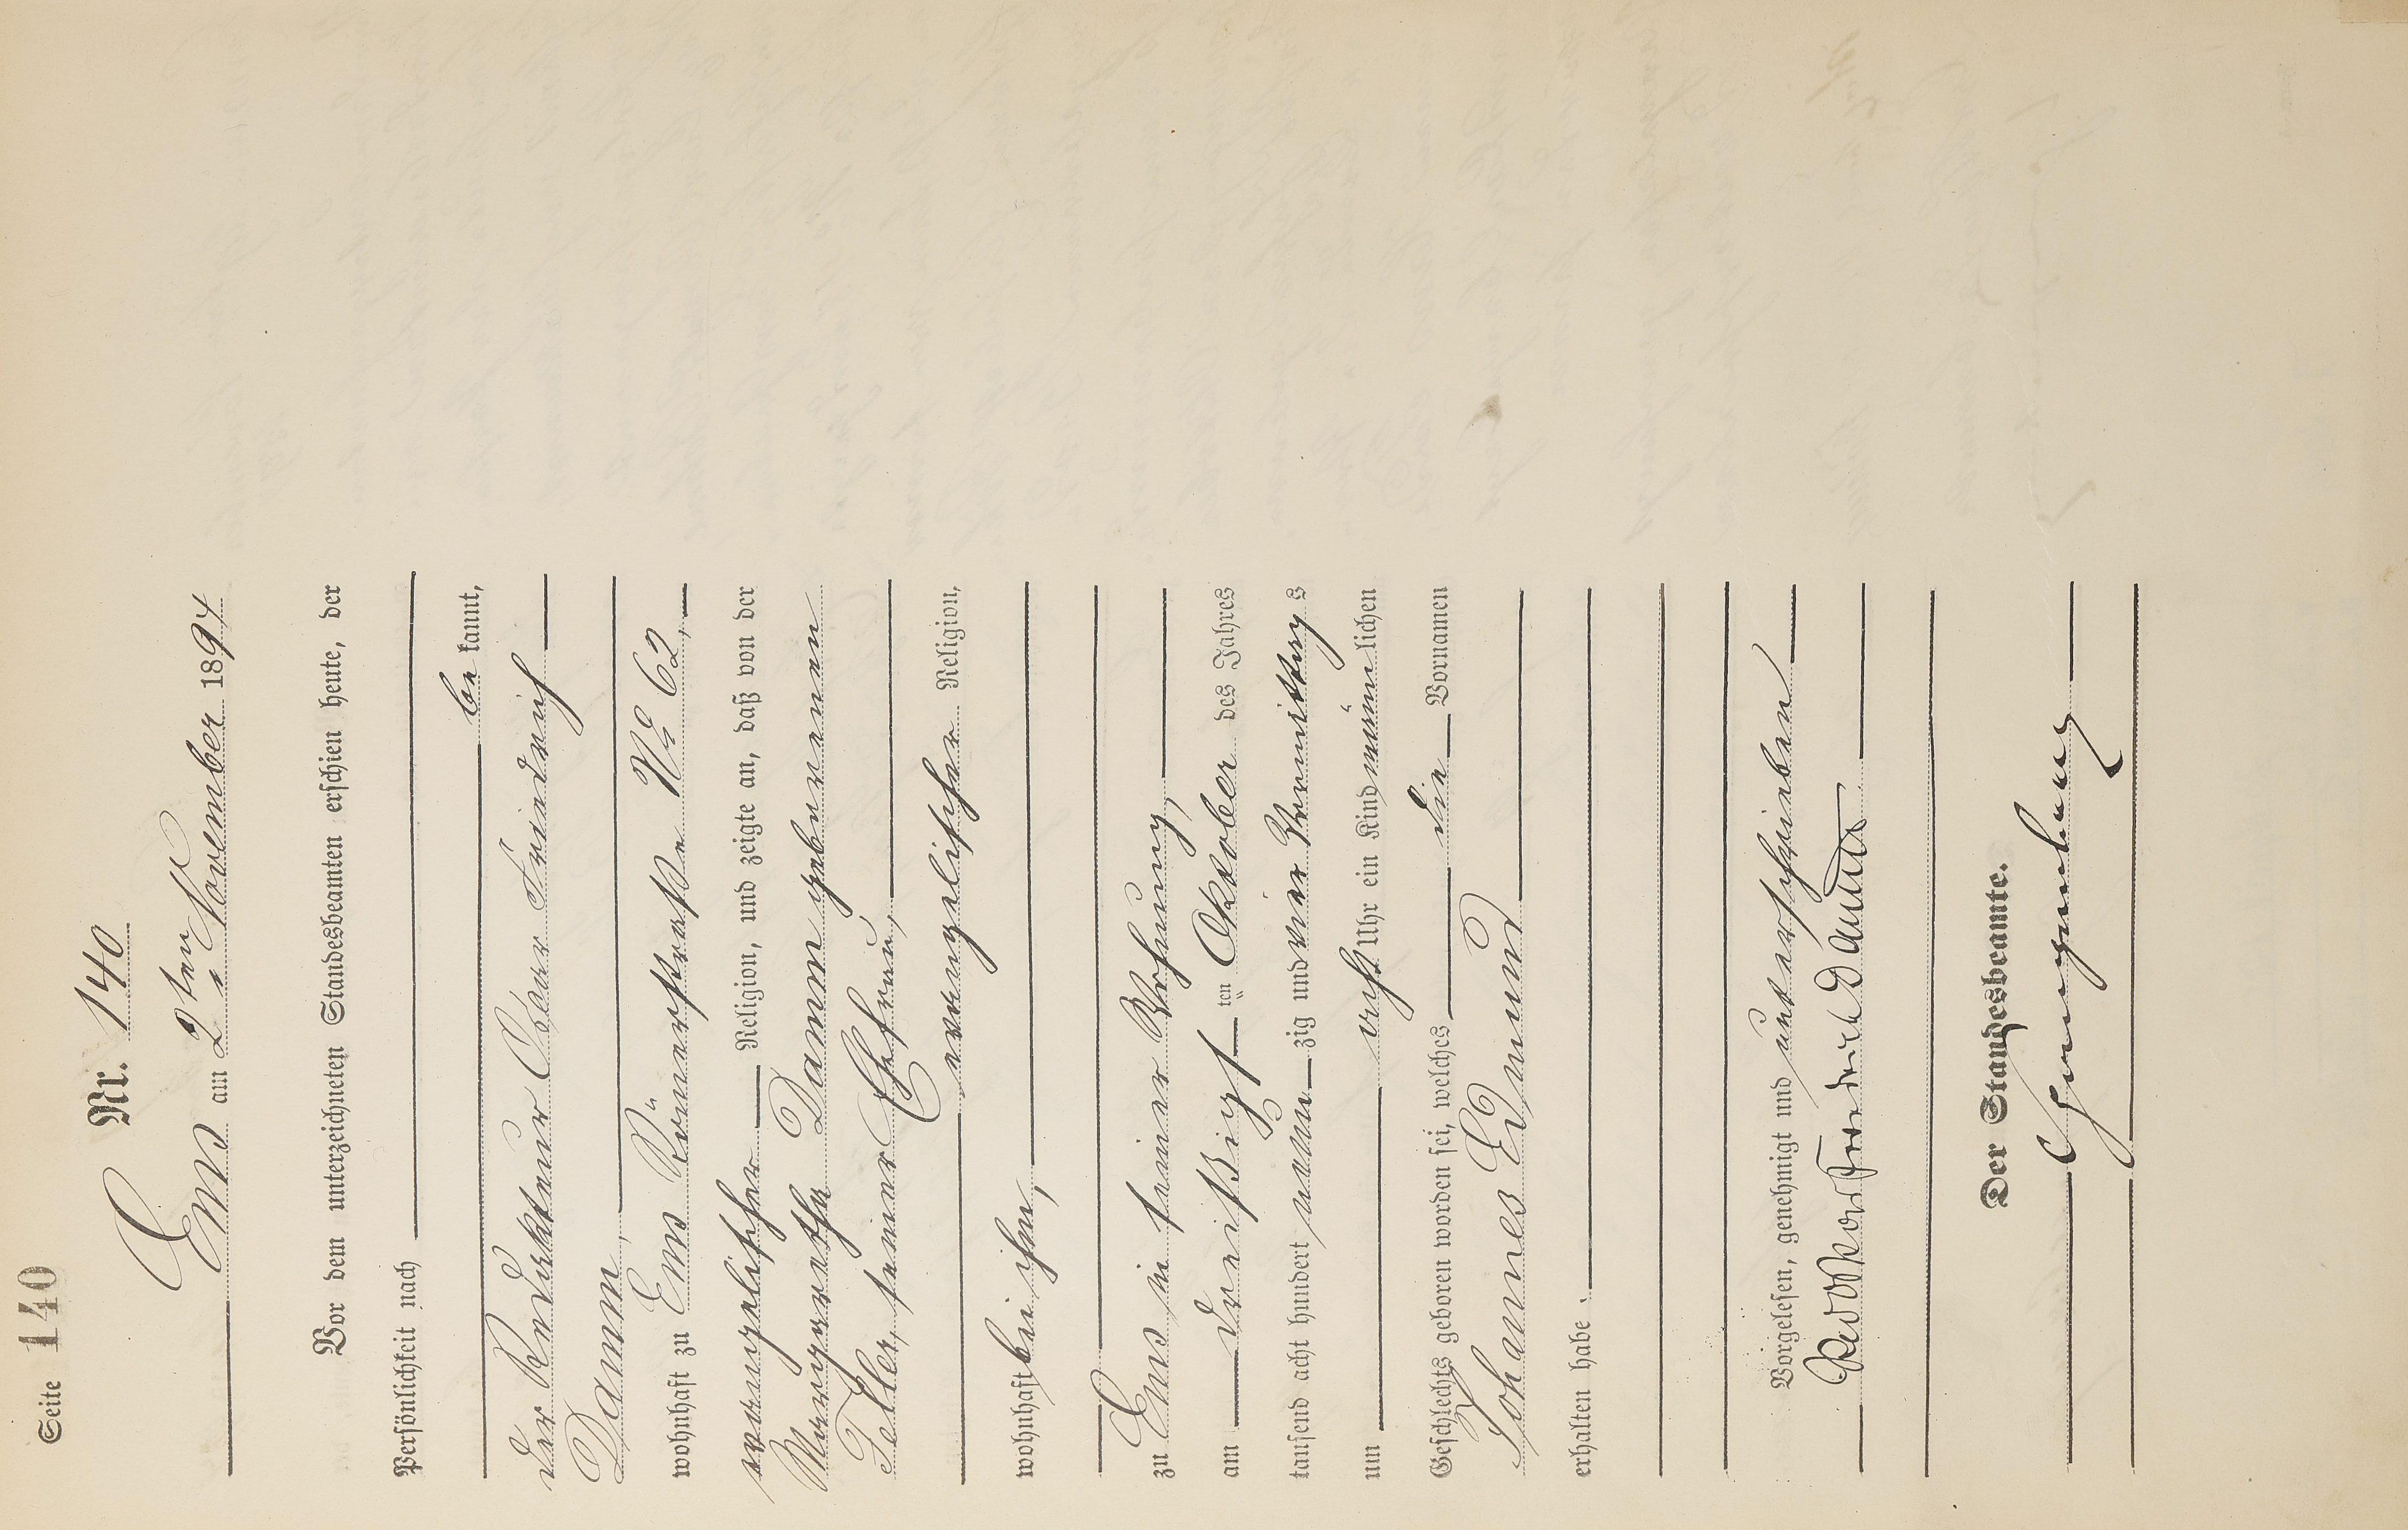 Seite 140
Nr. 140
Ems am 2ten November 1894
Vor dem unterzeichneten Standesbeamten erschien heute, der
Persönlichkeit nach
bekannt,
der Redakteur Oskar Friedrich
Damm,
wohnhaft zu Ems Römerstraße No 62,
evangelischer Religion, und zeigte an, daß von der
Margarethe Damm geborenen
Feller, seiner Ehefrau,
evangelischer Religion,
wohnhaft bei ihm,
zu Ems in seiner Wohnung,
am dreißigsten Oktober des Jahres
tausend acht hundert neunzig und vier Vormittags
um acht Uhr ein Kind männlichen
Geschlechts geboren worden sei, welches die Vornamen
Johannes Edmund
erhalten habe.
Vorgelesen, genehmigt und unterschrieben
Oskar Friedrich Damm
Der Standesbeamte.